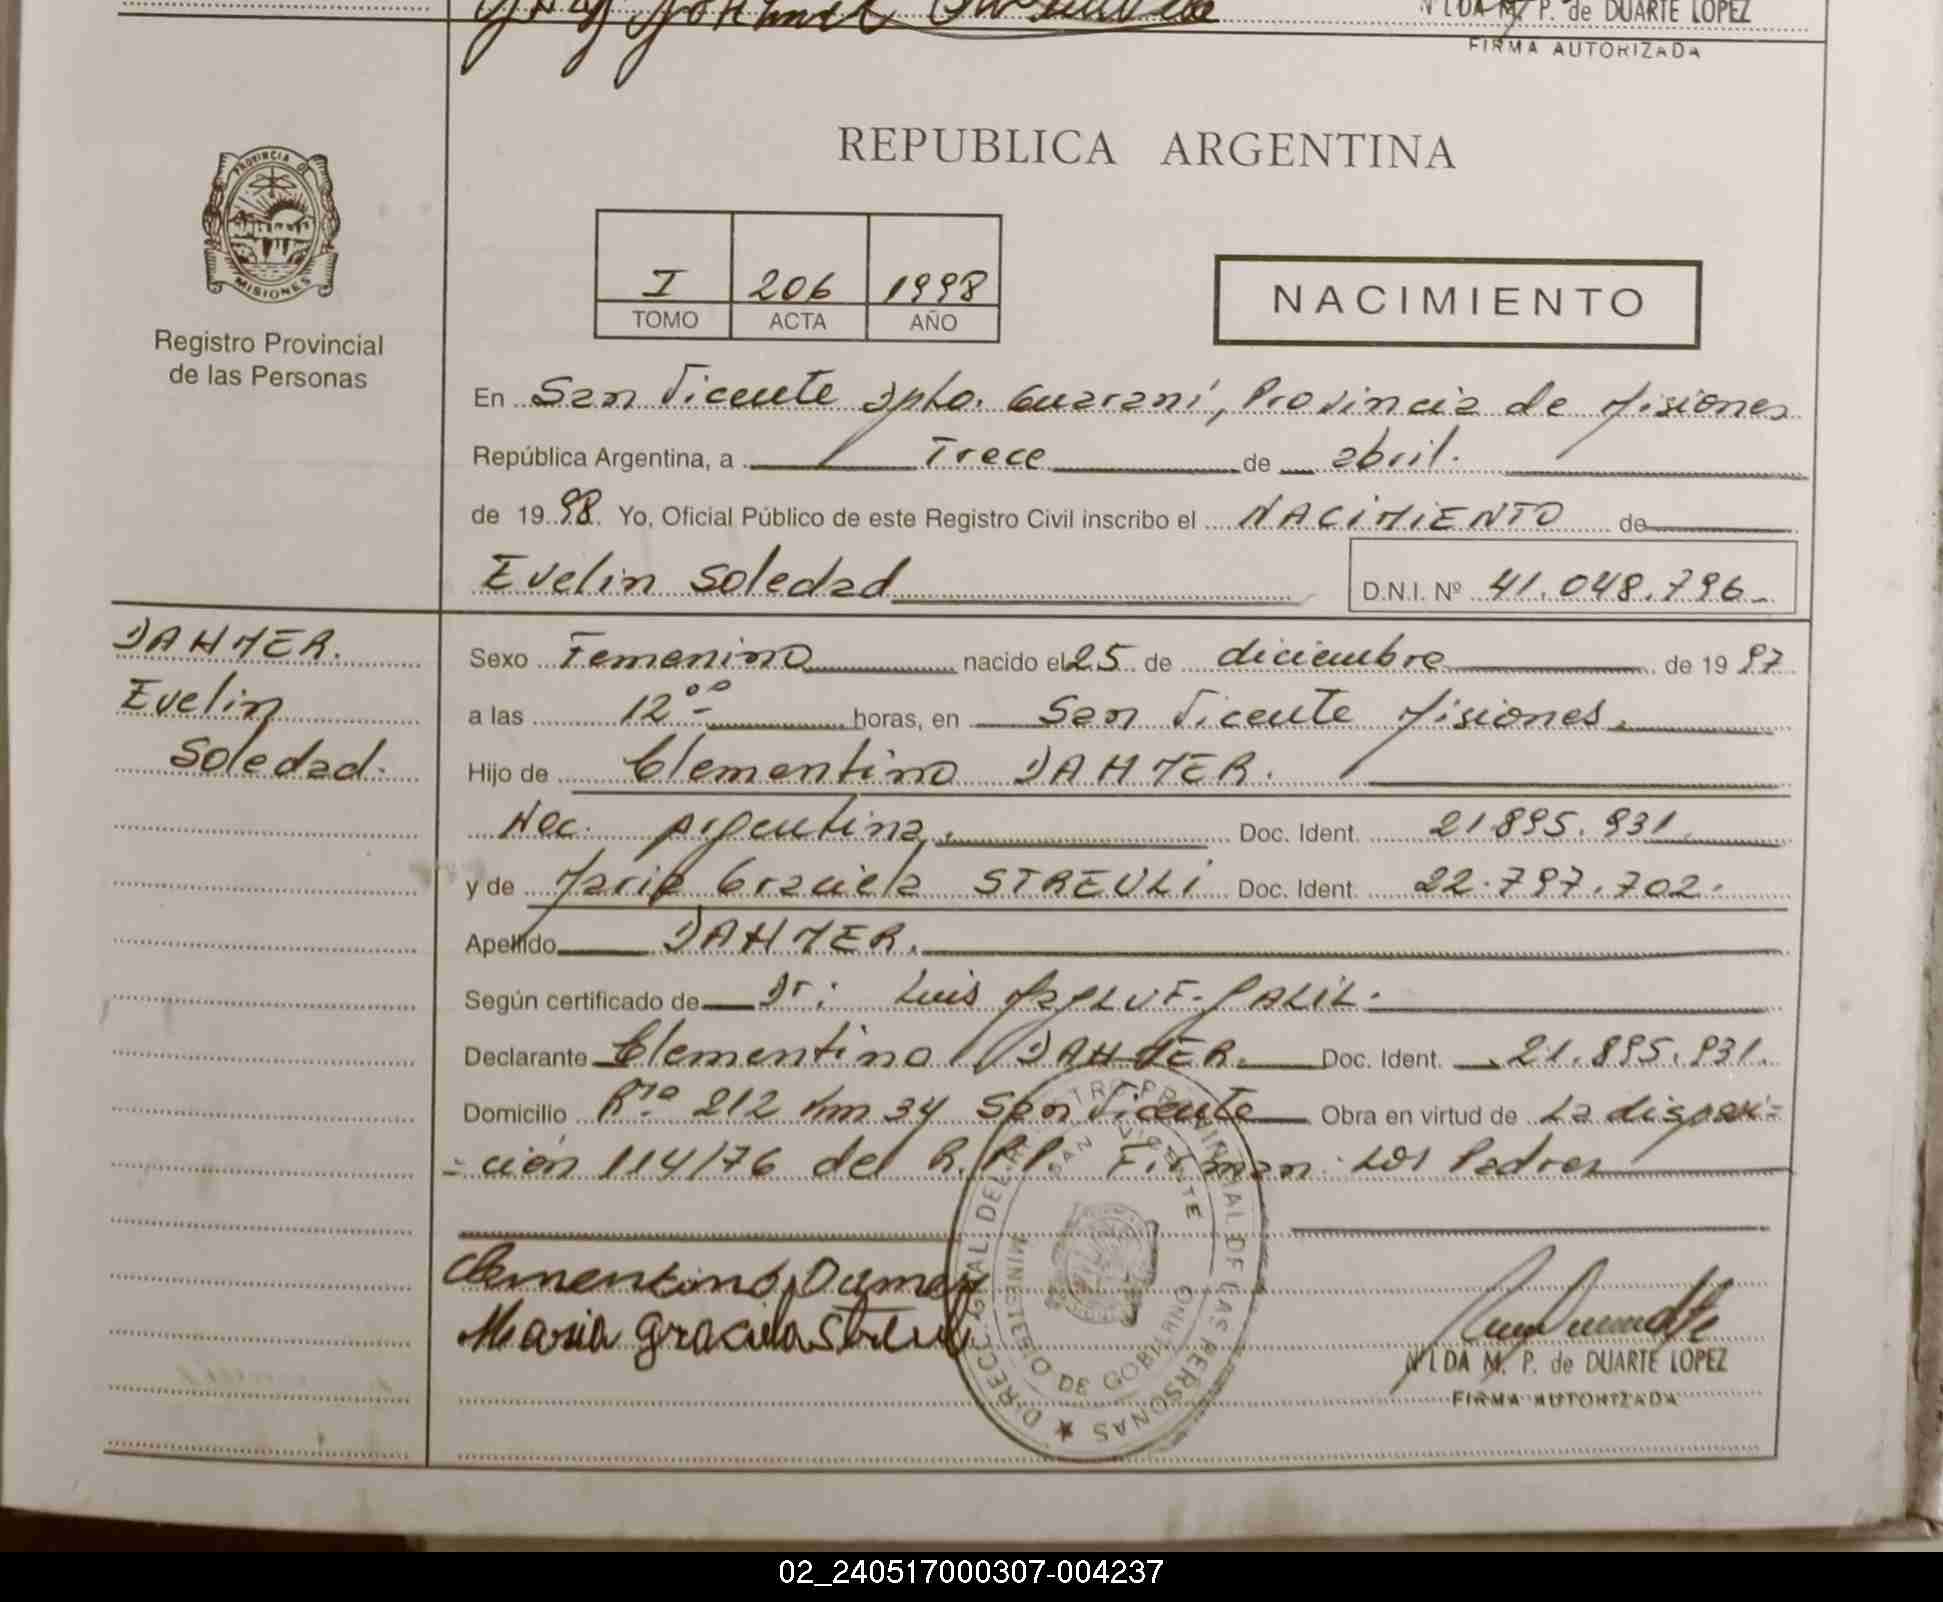 N LDA M. P. de DUARTE LOPEZ
FIRMA AUTORIZADA
PROVINCIA DE
MISIONES
Registro Provincial
de las Personas
REPUBLICA ARGENTINA
I 206 1998
TOMO ACTA AÑO
NACIMIENTO
En San Vicente Dpto. Guaraní, Provincia de Misiones
República Argentina, a Trece de abril.
de 1998. Yo, Oficial Público de este Registro Civil inscribo el NACIMIENTO de
Evelin Soledad D.N.I. Nº 41.048.796
DAHMER.
Evelin
Soledad.
Sexo Femenino nacido el 25 de diciembre de 1997
a las 12°° horas, en San Vicente Misiones.
Hijo de Clementino DAHMER.
Nac. Argentina. Doc. Ident. 21895.931
y de Maria Graciela STREULI Doc. Ident. 22.797.702.
Apellido DAHMER.
Según certificado de Dr: Luis
Declarante Clementino DAHMER. Doc. Ident. 21.895.931.
Domicilio Rta 212 km 34 San Vicente Obra en virtud de La disposi=
=ción 114/76 del R.P.P. Firman: Los Padres
Clementino Damer
Maria graciela Streuli
DIRECC. GRAL. DEL REGISTRO PROVINCIAL DE LAS PERSONAS
SAN VICENTE
MINISTERIO DE GOBIERNO
N LDA M. P. de DUARTE LOPEZ
FIRMA AUTORIZADA
02_240517000307-004237